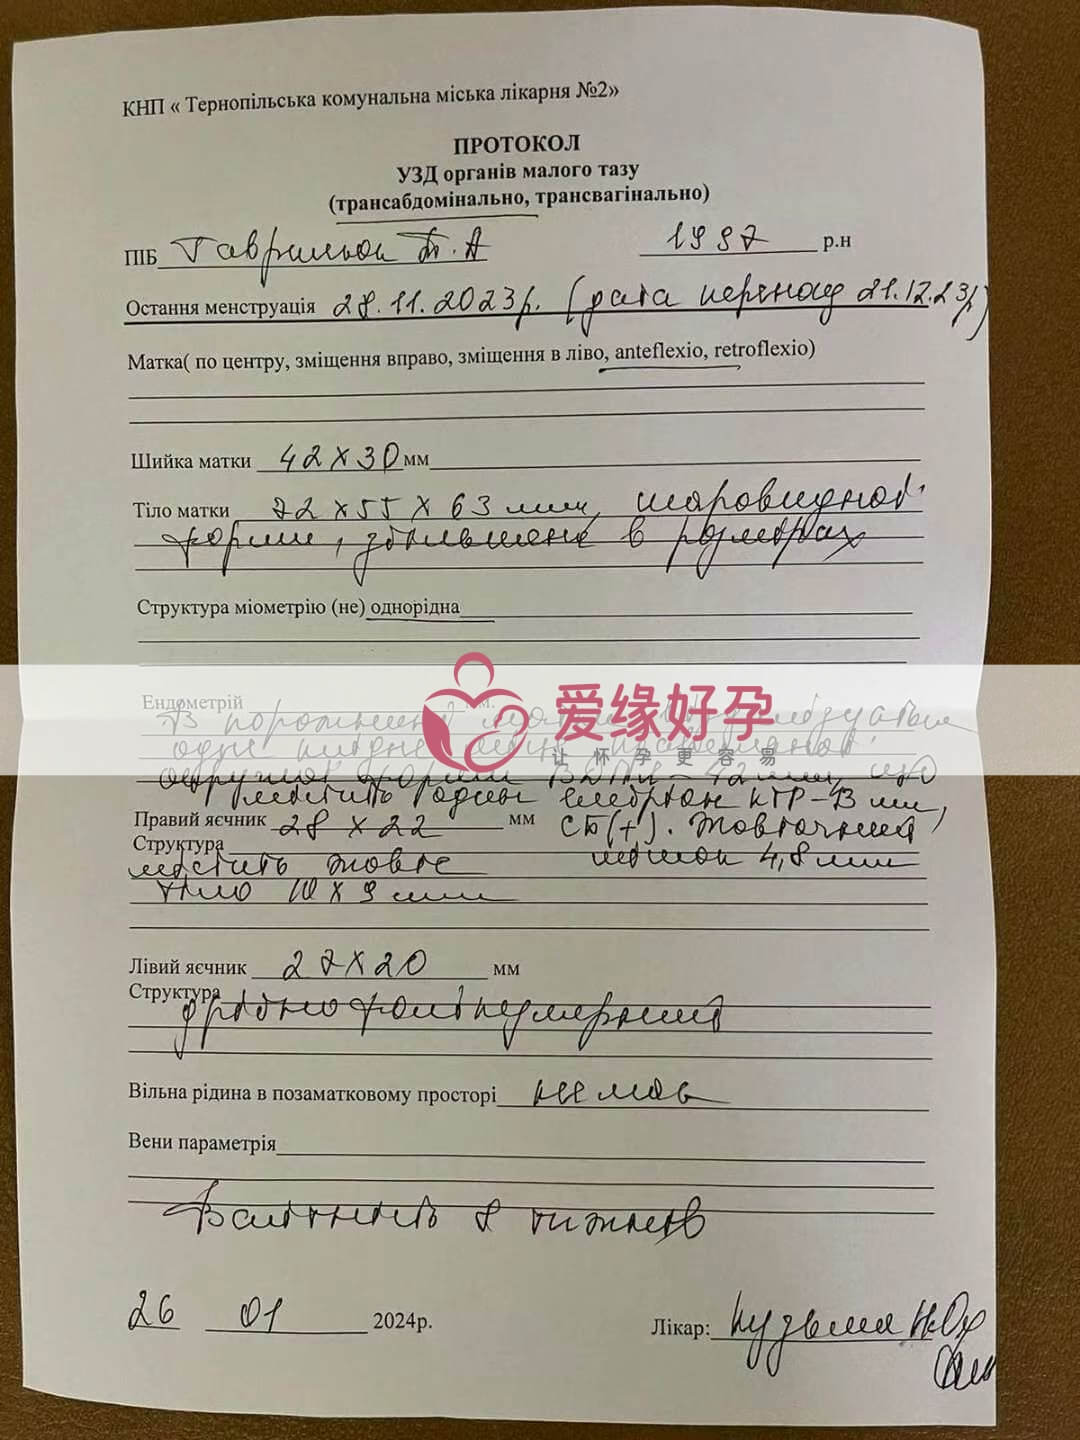 КНП « Тернопільська комунальна міська лікарня №2»
ПРОТОКОЛ
УЗД органів малого тазу
(трансабдомінально, трансвагінально)
ПІБ Т. А 1997 р.н
Остання менструація 28.11.2023р. (дата переносу 21.12.23р)
Матка( по центру, зміщення вправо, зміщення в ліво, anteflexio, retroflexio)
Шийка матки 42 х 30 мм
Тіло матки 72 х 55 х 63 мм, шаровидної
форми, збільшена в розмірах
Структура міометрію (не) однорідна
Ендометрій мм.
В порожнині
одне плідне
округлої форми 42 мм, що
爱缘好孕
让怀孕更容易
містить один ембріон КТР-13 мм,
Правий яєчник 28 х 22 мм СБ(+). Жовточний
Структура
містить жовте мішок 4,8 мм
тіло 10 х 9 мм
Лівий яєчник 27 х 20 мм
Структура
дрібнофолікулярний
Вільна рідина в позаматковому просторі немає
Вени параметрія
Вагітність 8 тижнів
26 01 2024р.
Лікар: